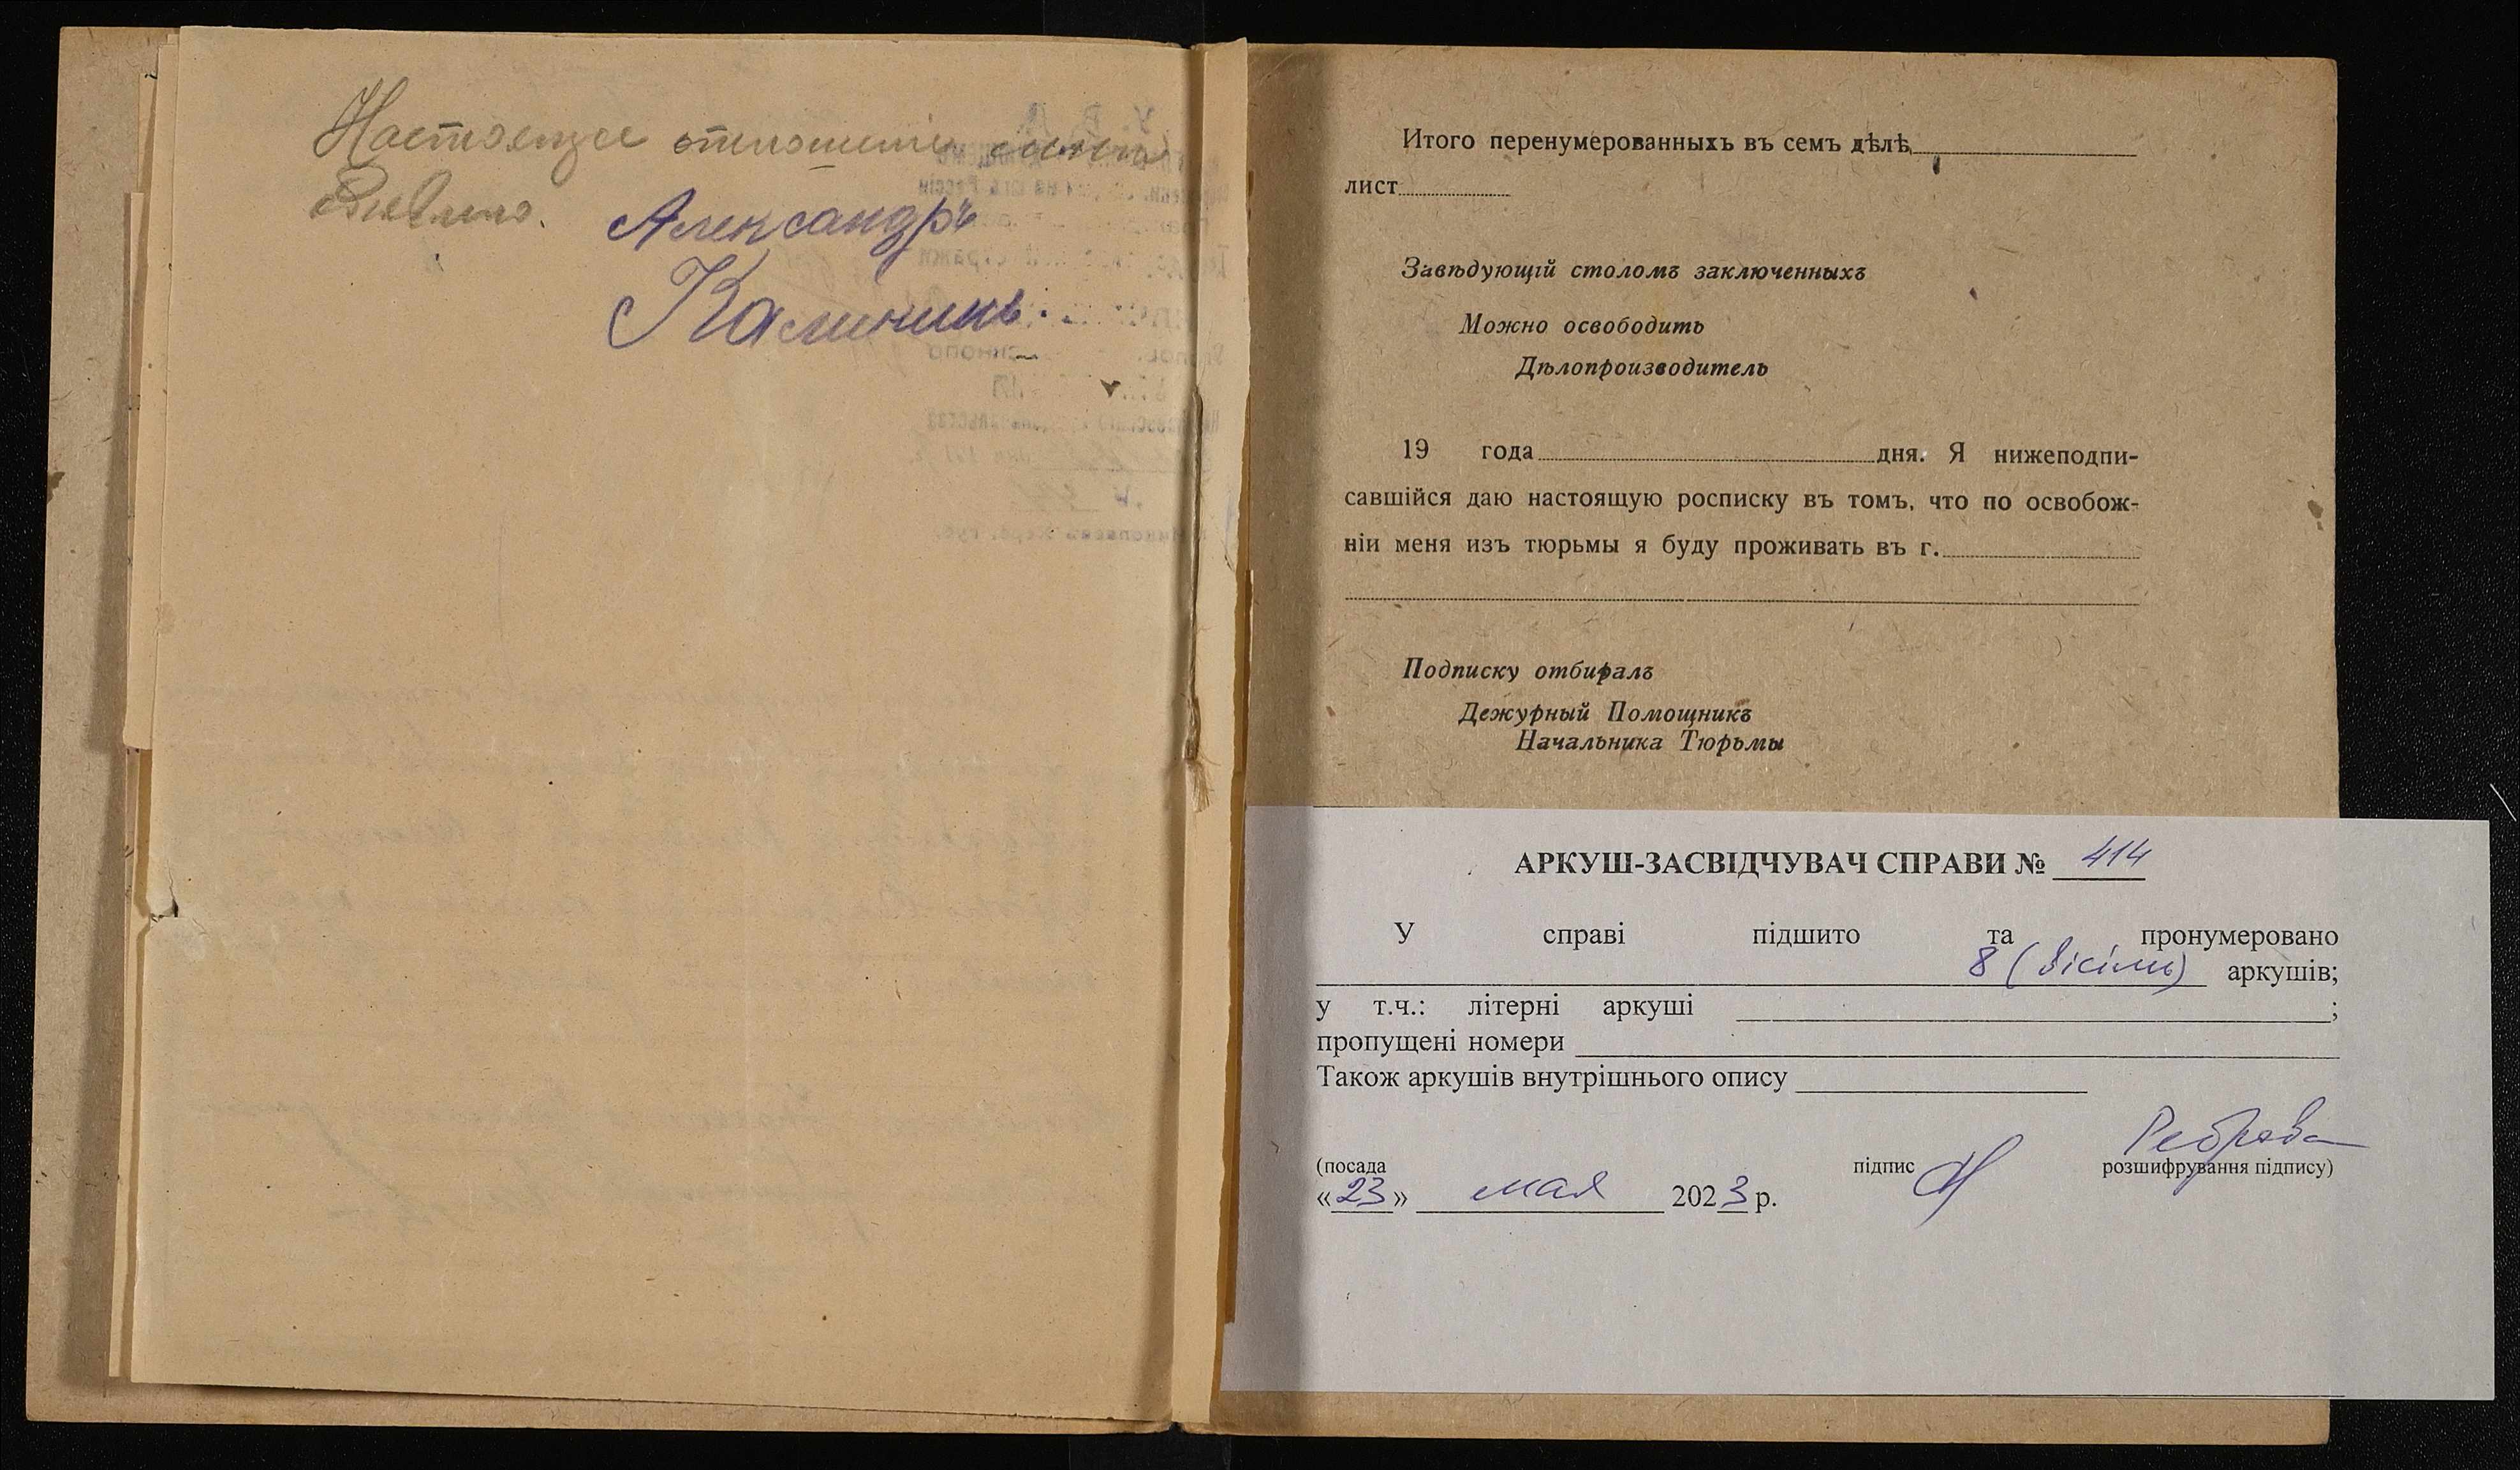 Настоящее отношенiе
Александръ
Калининъ.
Итого перенумерованныхъ въ семъ дѣлѣ
лист
Завѣдующій столомъ заключенныхъ
Можно освободить
Дѣлопроизводитель
19 года дня. Я нижеподпи-
савшійся даю настоящую росписку въ томъ, что по освобож-
ніи меня изъ тюрьмы я буду проживать въ г.
Подписку отбиралъ
Дежурный Помощникъ
Начальника Тюрьмы
АРКУШ-ЗАСВІДЧУВАЧ СПРАВИ № 414
У справі підшито та пронумеровано
8 (вісім) аркушів;
у т.ч.: літерні аркуші ;
пропущені номери
Також аркушів внутрішнього опису
Реброва
(посада підпис розшифрування підпису)
«23» мая 2023 р.